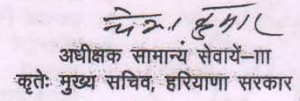 अधीक्षक सामान्य सेवायें–III
कृतेः मुख्य सचिव, हरियाणा सरकार